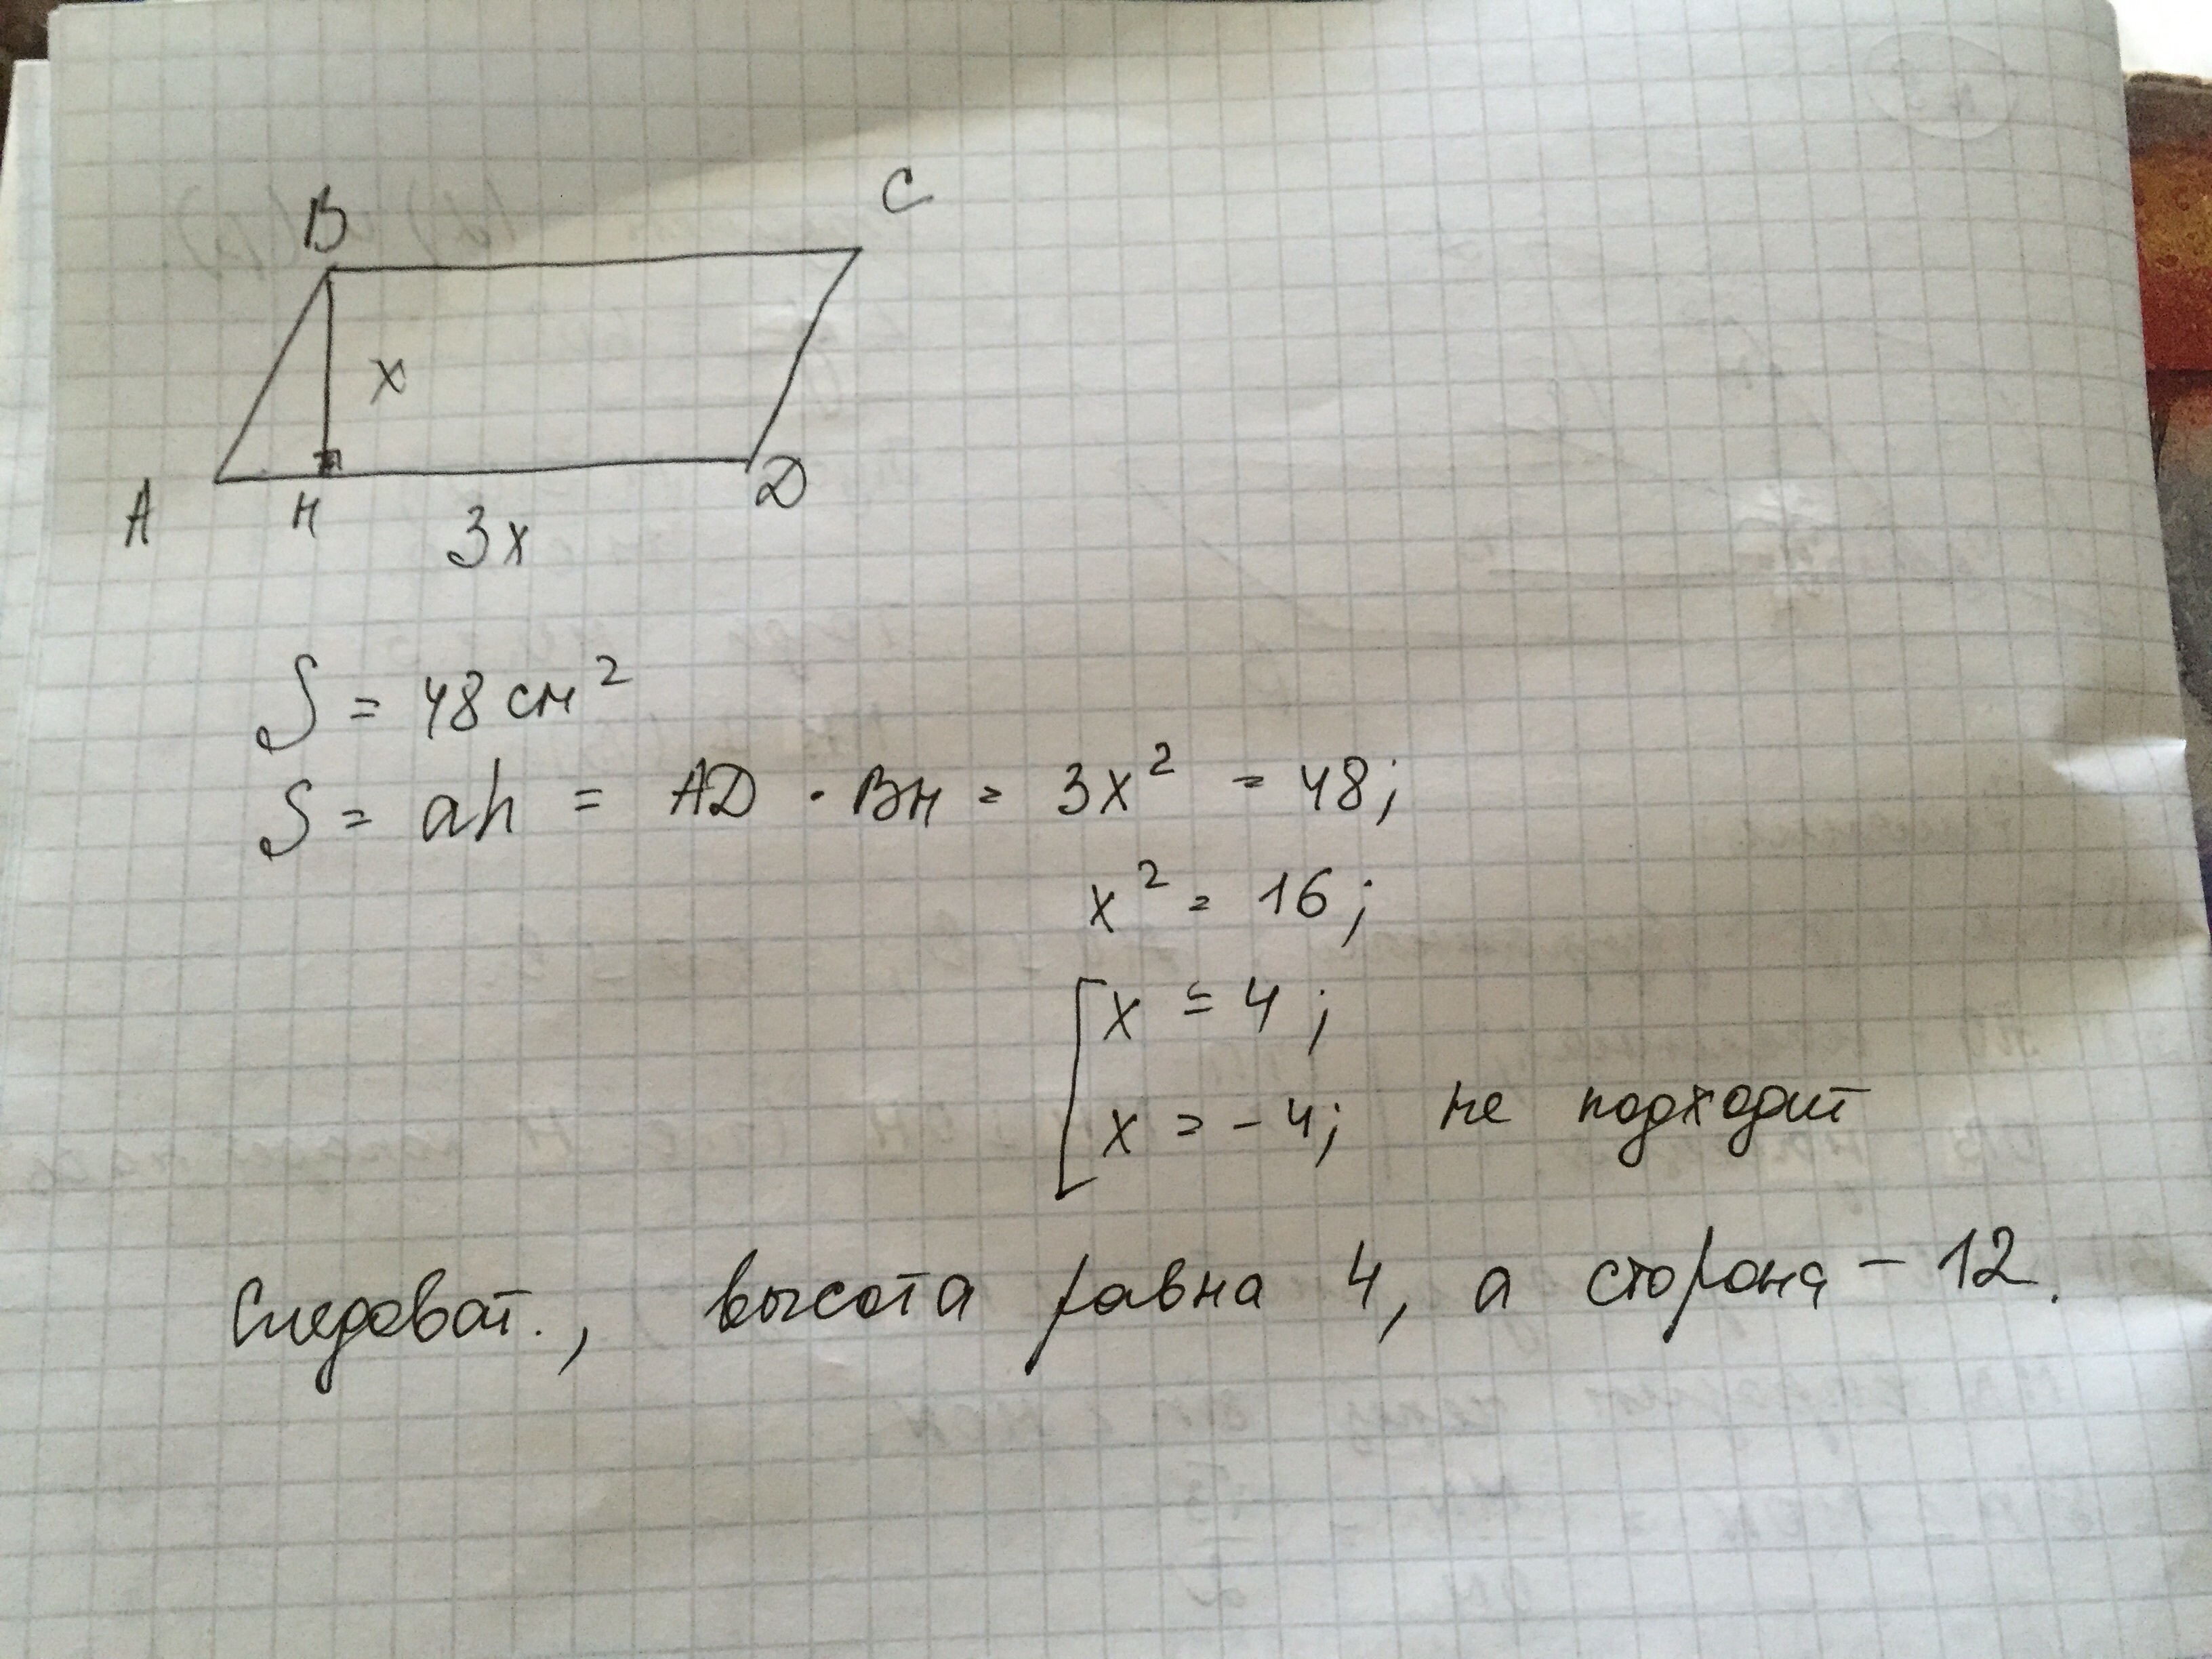 B
C
x
A
H
D
3x
S = 48 см²
S = ah = AD · BH = 3x² = 48;
x² = 16;
x = 4;
x = -4; не подходит
Следоват., высота равна 4, а сторона - 12.